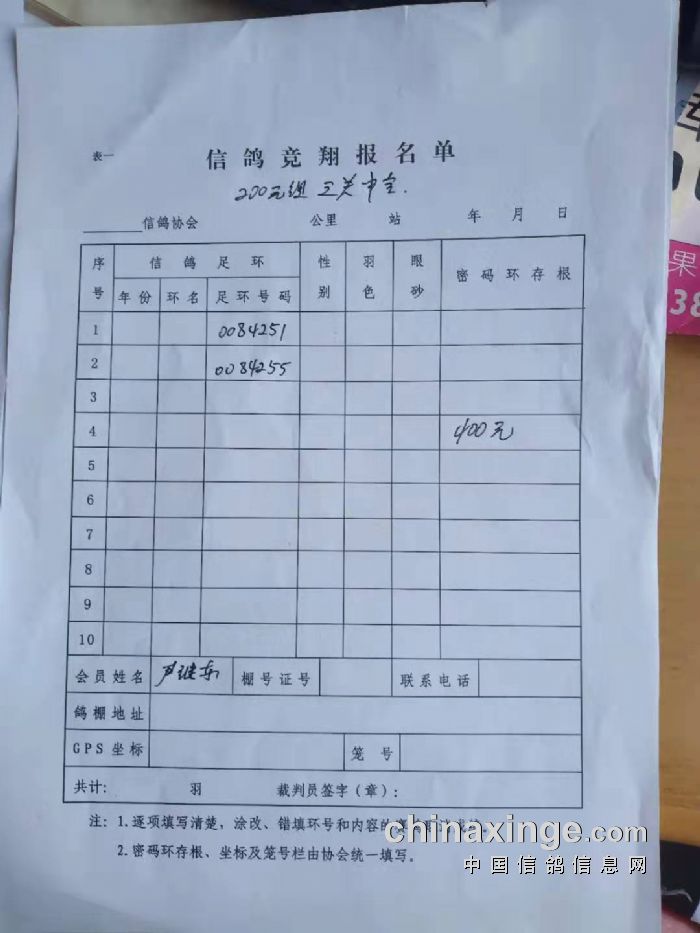 表一
信鸽竞翔报名单
200元组 三关中全.
______信鸽协会 公里 站 年 月 日
序号 信鸽足环 性别 羽色 眼砂 密码环存根
年份 环名 足环号码
1 0084251
2 0084255
3
4 400元
5
6
7
8
9
10
会员姓名 尹继东 棚号证号 联系电话
鸽棚地址
GPS坐标 笼号
共计: 羽 裁判员签字(章):
注: 1.逐项填写清楚,涂改、错填环号和内容的
2.密码环存根、坐标及笼号栏由协会统一填写。
chinaxinge.com
中国信鸽信息网
果
38